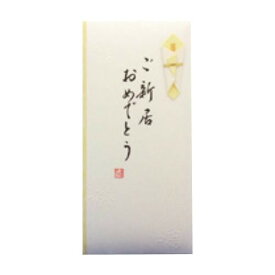 ご新居
おめでとう